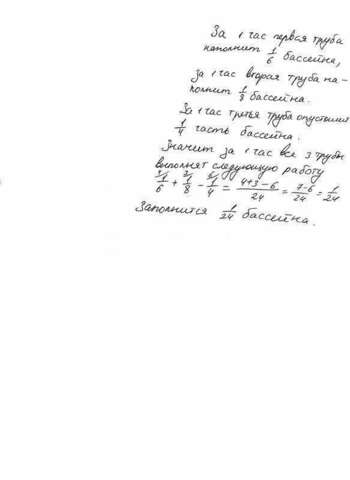 За 1 час первая труба
наполнит 1/6 бассейна,
за 1 час вторая труба на-
полнит 1/8 бассейна.
За 1 час третья труба опустошит
1/4 часть бассейна.
Значит за 1 час все 3 трубы
выполнят следующую работу
1/6 + 1/8 - 1/4 = 4+3-6/24 = 7-6/24 = 1/24
Заполнится 1/24 бассейна.